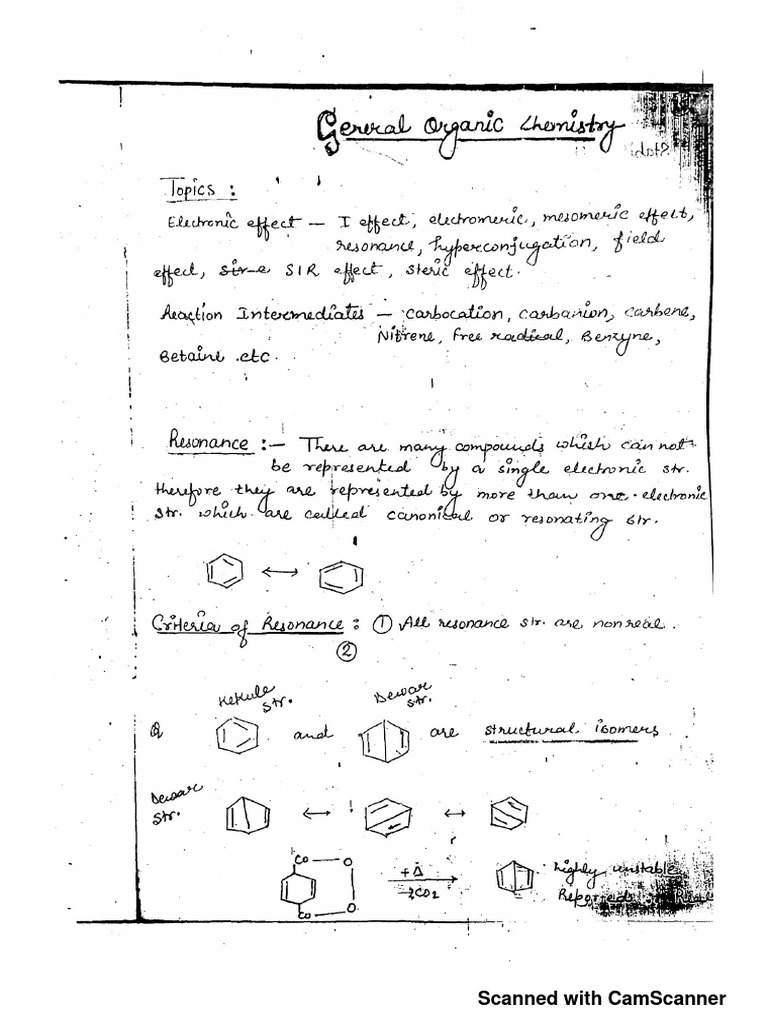 General Organic Chemistry
Topics :
Electronic effect — I effect, electromeric, mesomeric effect,
resonance, hyperconjugation, field
effect, SIR effect, steric effect.
Reaction Intermediates — carbocation, carbanion, carbene,
Nitrene, free radical, Benzyne,
Betaine etc.
Resonance :— There are many compounds which can not
be represented by a single electronic str.
therefore they are represented by more than one electronic
str. which are called canonical or resonating str.
Criteria of Resonance : ① All resonance str. are non real.
②
Kekule str. Dewar str.
Q and are structural isomers
Dewar str.
CO O
+Δ
-2CO2
highly unstable
CO O
Reported
Scanned with CamScanner